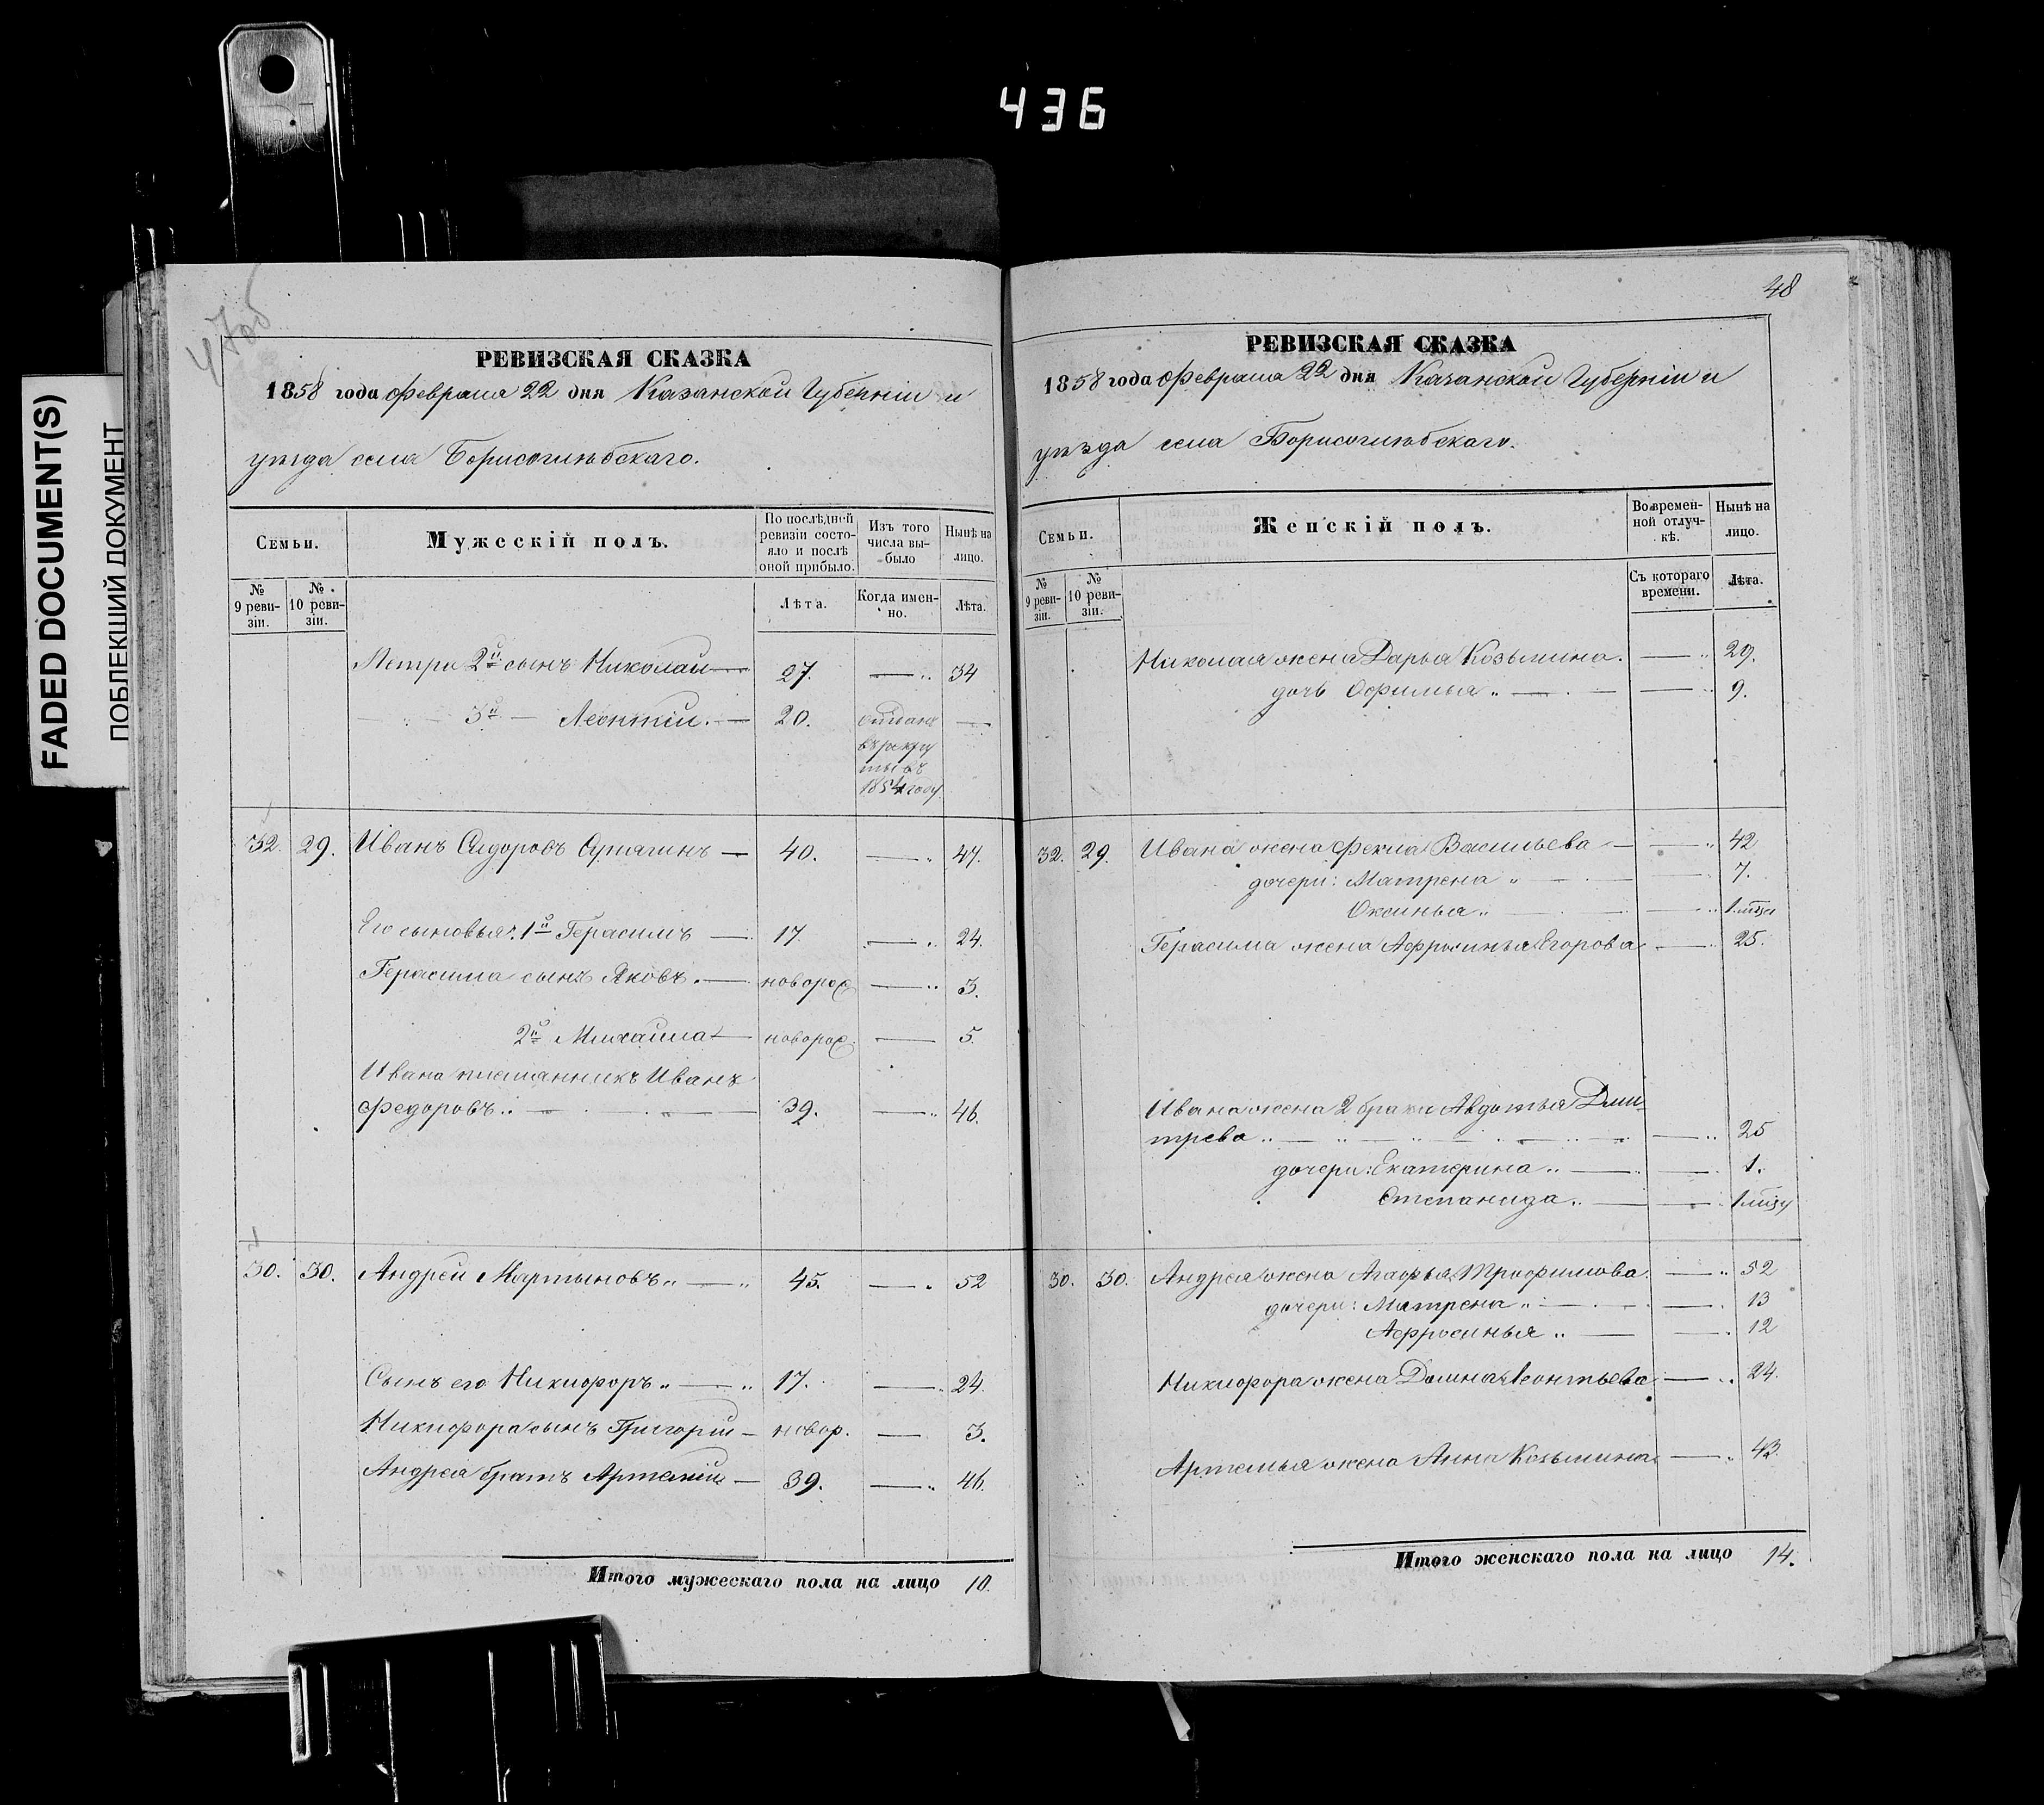 436
FADED DOCUMENT(S)
ПОБЛЕКШИЙ ДОКУМЕНТ
47об
РЕВИЗСКАЯ СКАЗКА
1858 года Февраля 22 дня Казанской Губерніи и
уѣзда села Борисоглѣбскаго.
Семьи.
Мужескій полъ.
По послѣдней ревизіи состояло и послѣ оной прибыло.
Изъ того числа выбыло
Нынѣ на лицо.
№ 9 ревизіи.
№ 10 ревизіи.
Лѣта.
Когда именно.
Лѣта.
Петра 2й сынъ Николай — 27. — 34
3й — Леонтій. — 20. отданъ —
въ рекру
ты въ
1854 году
32. 29. Иванъ Сидоровъ — 40. — 47.
Его сыновья: 1й Герасимъ — 17. — 24.
Герасима сынъ Яковъ. — новорож — 3.
2й Михайла — новорож. — 5.
Ивана племянникъ Иванъ
Федоровъ.. — 39. — 46.
30. 30. Андрей Мартыновъ„ — 45. — 52
Сынъ его Никифоръ„ — 17. — 24.
Никифора сынъ Григорій — новор. — 3.
Андрея братъ Артемій — 39. — 46.
Итого мужескаго пола на лицо 10.
48
РЕВИЗСКАЯ СКАЗКА
1858 года Февраля 22 дня Казанской Губерніи и
уѣзда села Борисоглѣбскаго.
Семьи.
Женскій полъ.
Во временной отлучкѣ.
Нынѣ на лицо.
№ 9 ревизіи.
№ 10 ревизіи.
Съ котораго времени.
Лѣта.
Николая жена Дарья Козьмина. — 29.
дочь Офимья„ — 9.
32. 29. Ивана жена Фекла Васильева — 42
дочери: Матрена„ — 7.
Оксинья„ — 1 мѣся
Герасима жена Афросинья Егорова — 25.
Ивана жена 2 брака Авдотья Дми-
трева.. — 25
дочери: Екатерина.. — 1.
Степанида.. — 1 мѣся
30. 30. Андрея жена Агафья Трофимова. — 52
дочери: Матрена„ — 13
Афросинья„ — 12
Никифора жена Домна Леонтьева — 24.
Артемья жена Анна Козьмина. — 43.
Итого женскаго пола на лицо 14.